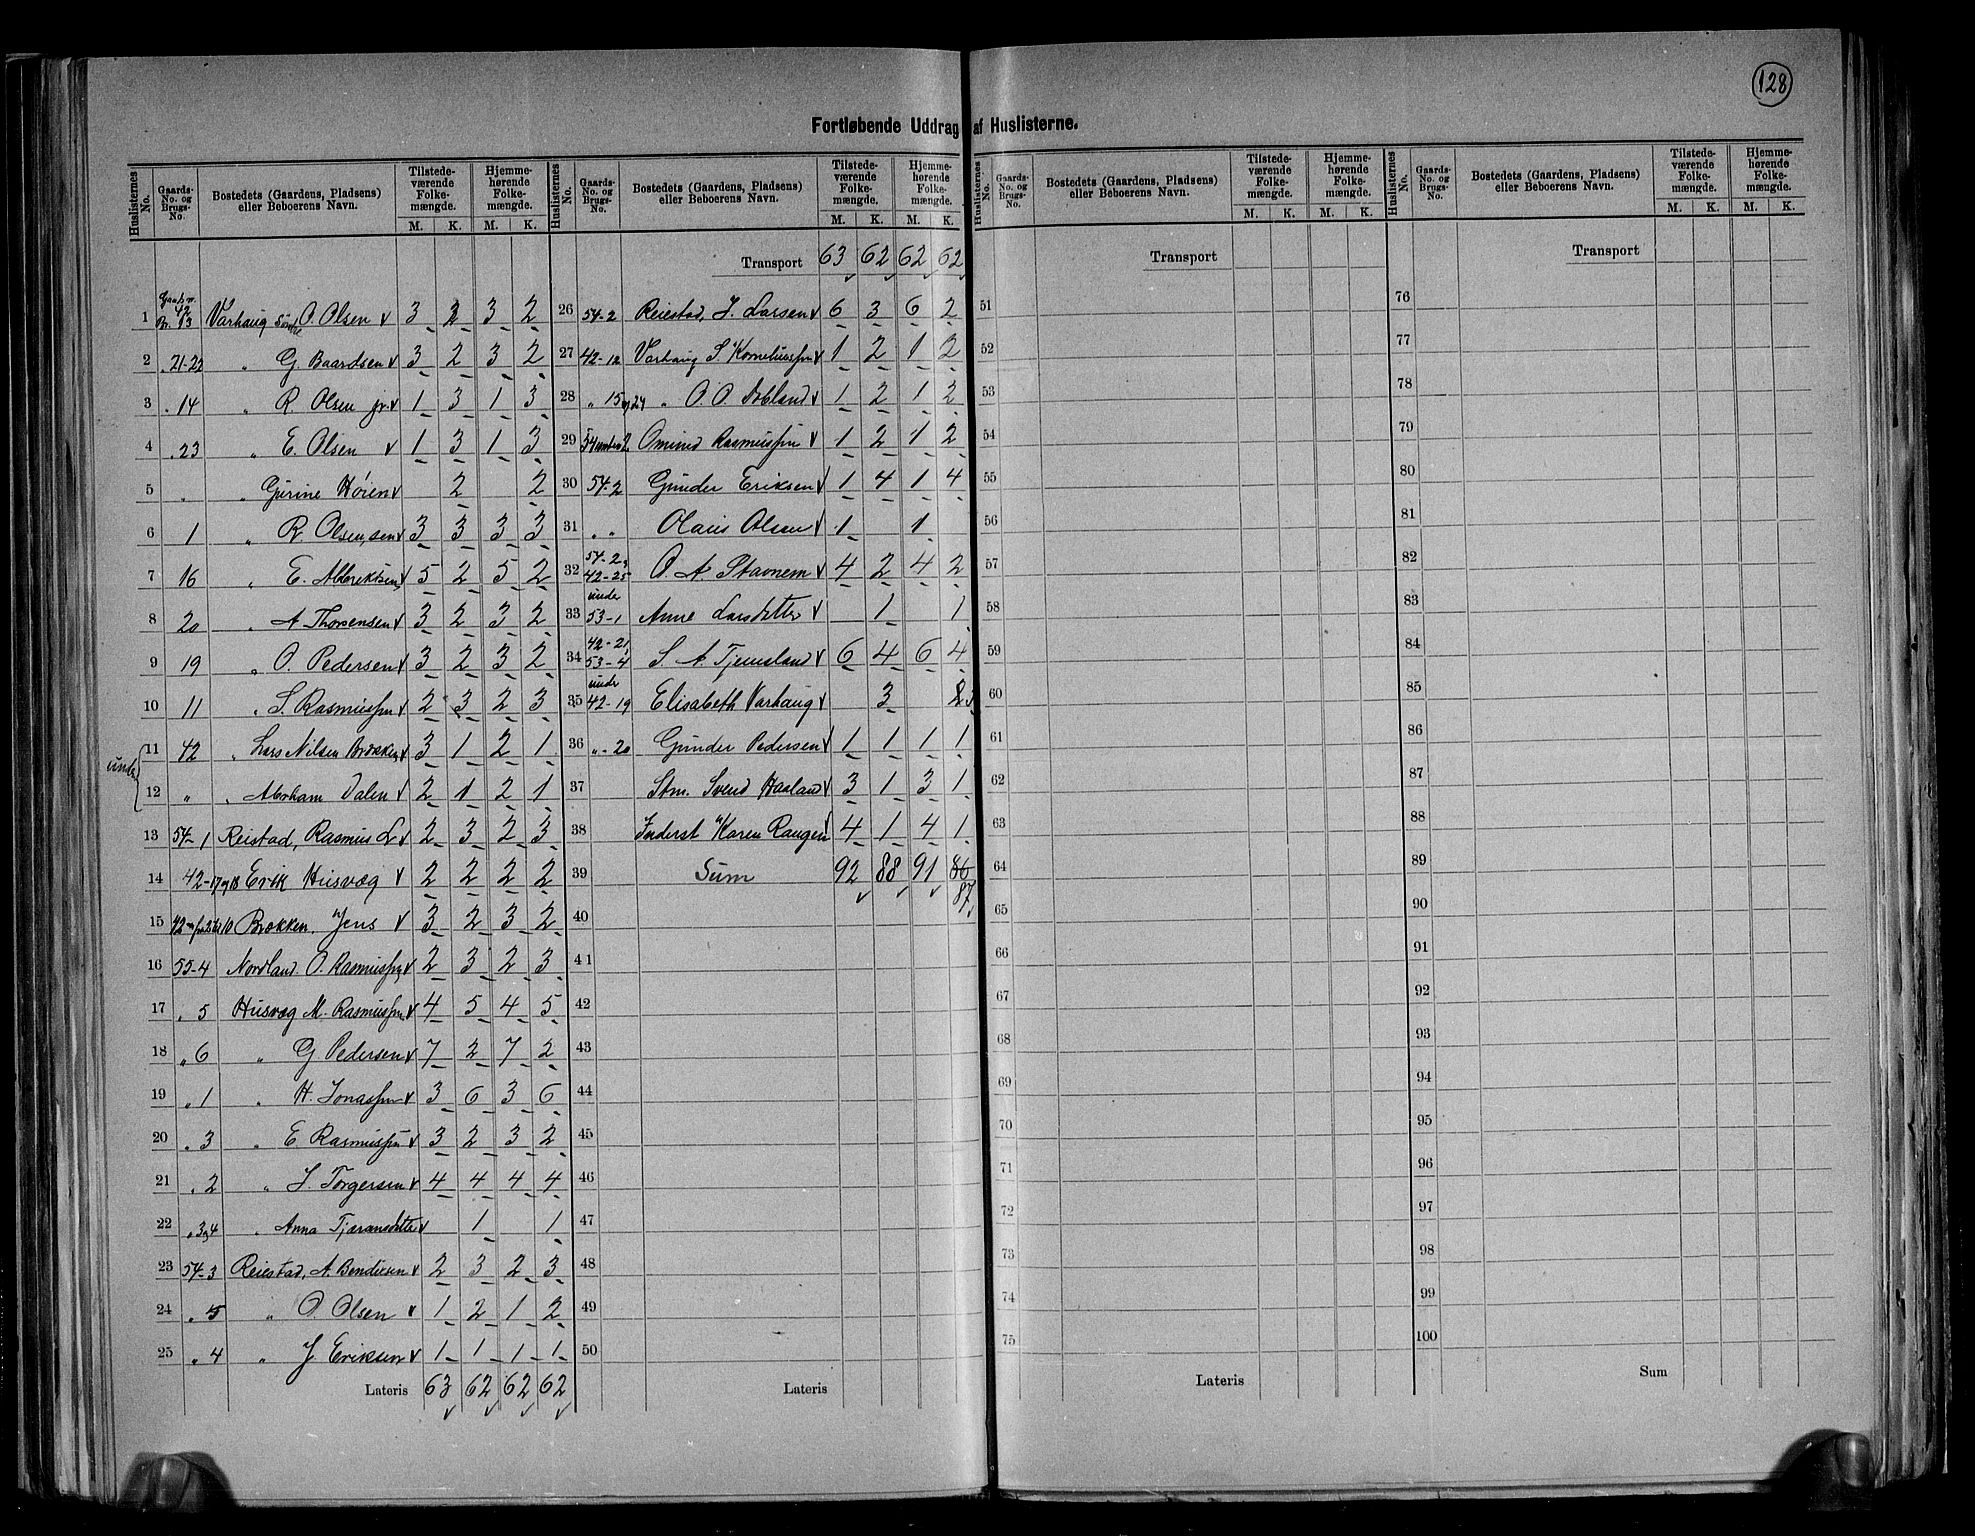 128
Fortløbende Uddrag af Huslisterne.
Huslisternes No. Gaards-No. og Brugs-No. Bostedets (Gaardens, Pladsens) eller Beboerens Navn. Tilstedeværende Folkemængde. M. K. Hjemmehørende Folkemængde. M. K.
1 42 13 Varhaug Søndre O. Olsen 3 2 3 2
2 21-22 " G. Baardsen 3 2 3 2
3 14 " R Olsen jr. 1 3 1 3
4 23 " E. Olsen 1 3 1 3
5 " " Gurine Høien 2 2
6 1 " R. Olsen, sen 3 3 3 3
7 16 " E. 5 2 5 2
8 20 " A Thorsensen 3 2 3 2
9 19 " O. Pedersen 3 2 3 2
10 11 " S. Rasmussen 2 3 2 3
under
11 42 " Lars Nilsen Brækken 3 1 2 1
12 " " Abraham Dalen 2 1 2 1
13 54-1 Reistad, Rasmus L 2 3 2 3
14 42-17og18 Erik Husvæg 2 2 2 2
15 Brækken, Jens 3 2 3 2
16 55-4 Nordland O. Rasmussen 2 3 2 3
17 " 5 Husvæg M. Rasmussen 4 5 4 5
18 " 6 " G Pedersen 7 2 7 2
19 " 1 " H. Jonassen 3 6 3 6
20 " 3 " E Rasmussen 3 2 3 2
21 " 2 " J. Torgersen 4 4 4 4
22 " " Anna Tjæransdatter 1 1
23 54-3 Reiestad, A. Bendiksen 2 3 2 3
24 " 5 " O. Olsen 1 2 1 2
25 " 4 " J Eriksen 1 1 1 1
Lateris 63 62 62 62
Huslisternes No. Gaards-No. og Brugs-No. Bostedets (Gaardens, Pladsens) eller Beboerens Navn. Tilstedeværende Folkemængde. M. K. Hjemmehørende Folkemængde. M. K.
Transport 63 62 62 62
26 54-2 Reiestad, J. Larsen 6 3 6 2
27 42-12 Varhaug S. Korneliussen 1 2 1 2
28 " 15 og 24 " O. O. 1 2 1 2
29 54 under 2 Omund Rasmussen 1 2 1 2
30 54-2 Gunder Eriksen 1 4 1 4
31 " " Olaus Olsen 1 1
32 54-2, 42-25 O. A. Stavnem 4 2 4 2
33 under 53-1 Anne Larsdatter 1 1
34 42-21, 53-4 S. A. Tjemsland 6 4 6 4
35 under 42-19 Elisabeth Varhaug 3 2 3
36 " - 20 Gunder Pedersen 1 1 1 1
37 Stm. Svend Haaland 3 1 3 1
38 Inderst Karen Raugen 4 1 4 1
39 Sum 92 88 91 86
87
40
41
42
43
44
45
46
47
48
49
50
Lateris
Huslisternes No. Gaards-No. og Brugs-No. Bostedets (Gaardens, Pladsens) eller Beboerens Navn. Tilstedeværende Folkemængde. M. K. Hjemmehørende Folkemængde. M. K.
Transport
51
52
53
54
55
56
57
58
59
60
61
62
63
64
65
66
67
68
69
70
71
72
73
74
75
Lateris
Huslisternes No. Gaards-No. og Brugs-No. Bostedets (Gaardens, Pladsens) eller Beboerens Navn. Tilstedeværende Folkemængde. M. K. Hjemmehørende Folkemængde. M. K.
Transport
76
77
78
79
80
81
82
83
84
85
86
87
88
89
90
91
92
93
94
95
96
97
98
99
100
Sum